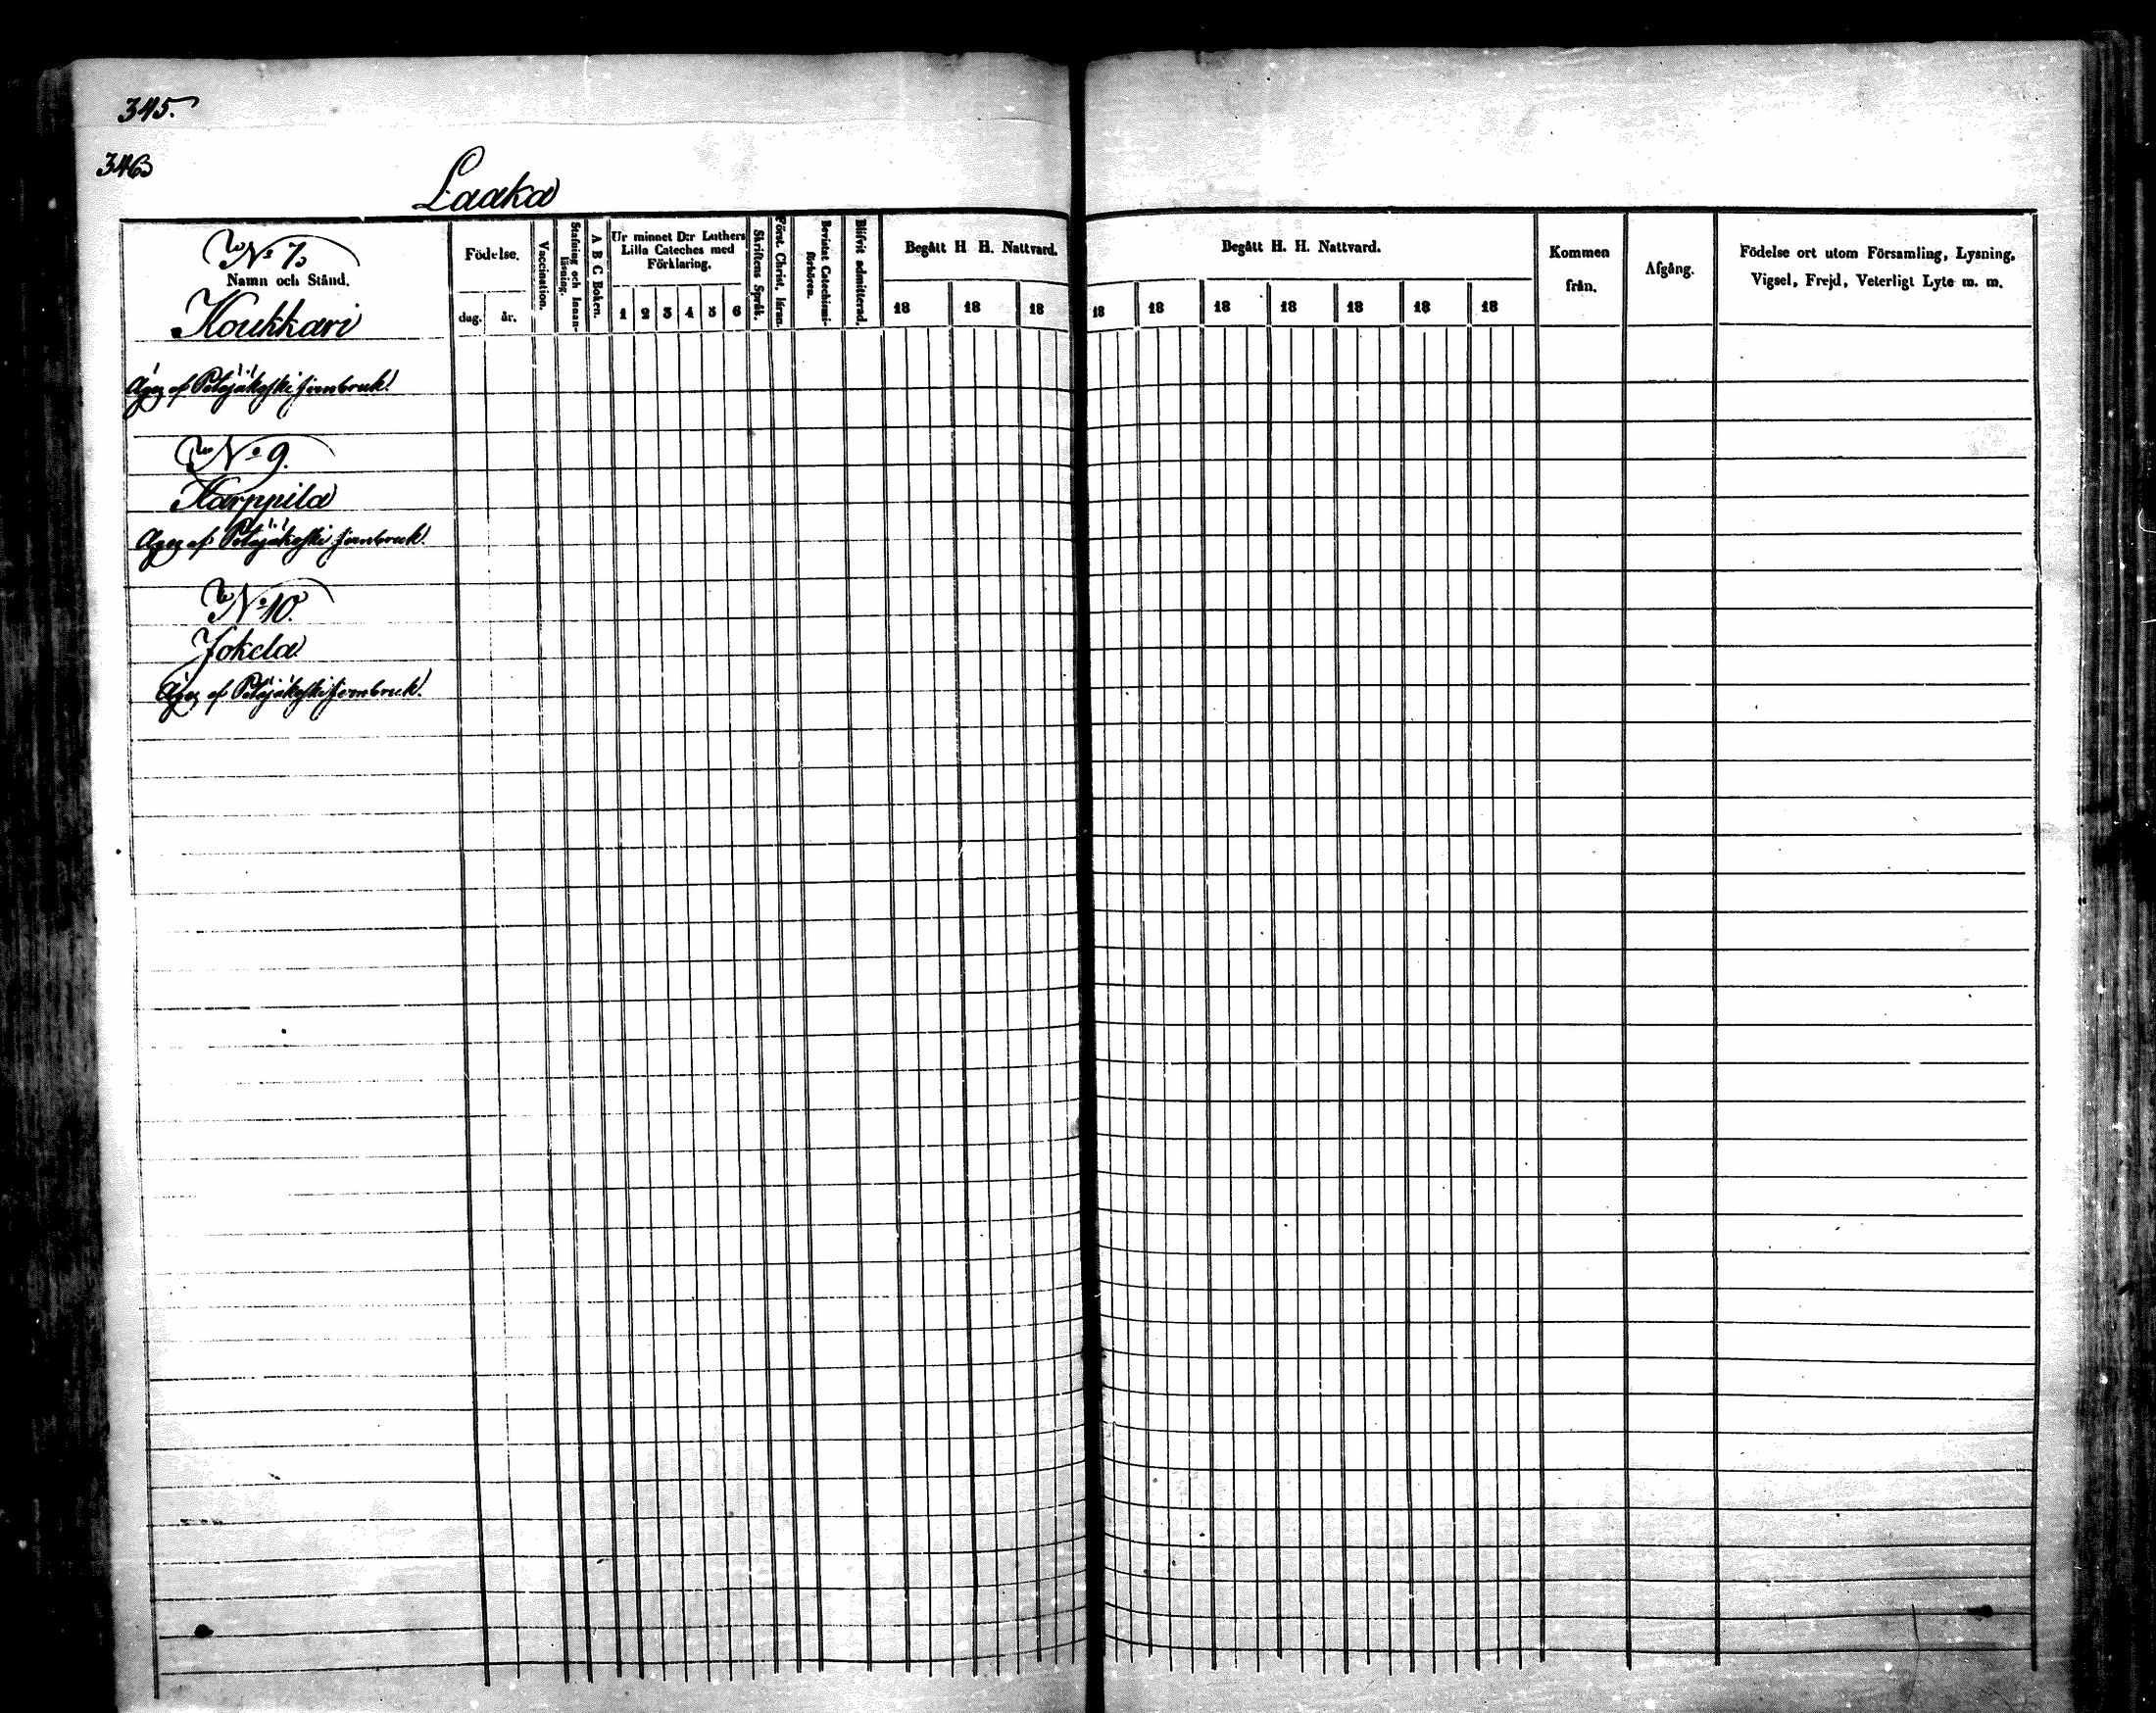 345.
346
Laaka
No 7.
Namn och Stånd.
Födelse.
dag. år.
Vaccination.
Stafning och Innan-
läsning.
A B C Boken.
Ur minnet D:r Luthers
Lilla Cateches med
Förklaring.
1 2 3 4 5 6
Skriftens Språk.
Först. Christ. läran.
Bevistat Catechismi-
förhören.
Blifvit admitterad.
Begått H H. Nattvard.
18 18 18
Begått H. H. Nattvard.
18 18 18 18 18 18 18
Kommen
från.
Afgång.
Födelse ort utom Församling, Lysning,
Vigsel, Frejd, Veterligt Lyte m. m.
Koukkari
Äges af Petäjäkoski Jernbruk.
No 9.
Karppila
Äges af Petäjäkoski Jernbruk.
No 10.
Jokela
Äges af Petäjäkoski Jernbruk.